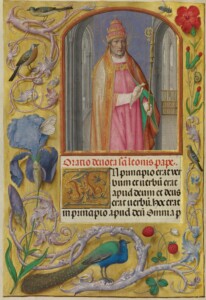 Oratio deuota sci leonis pape.
IN principio erat ver
bum et uerbū erat
apud deum et deus
erat uerbū. hoc erat
in principio apud deū Omnia p